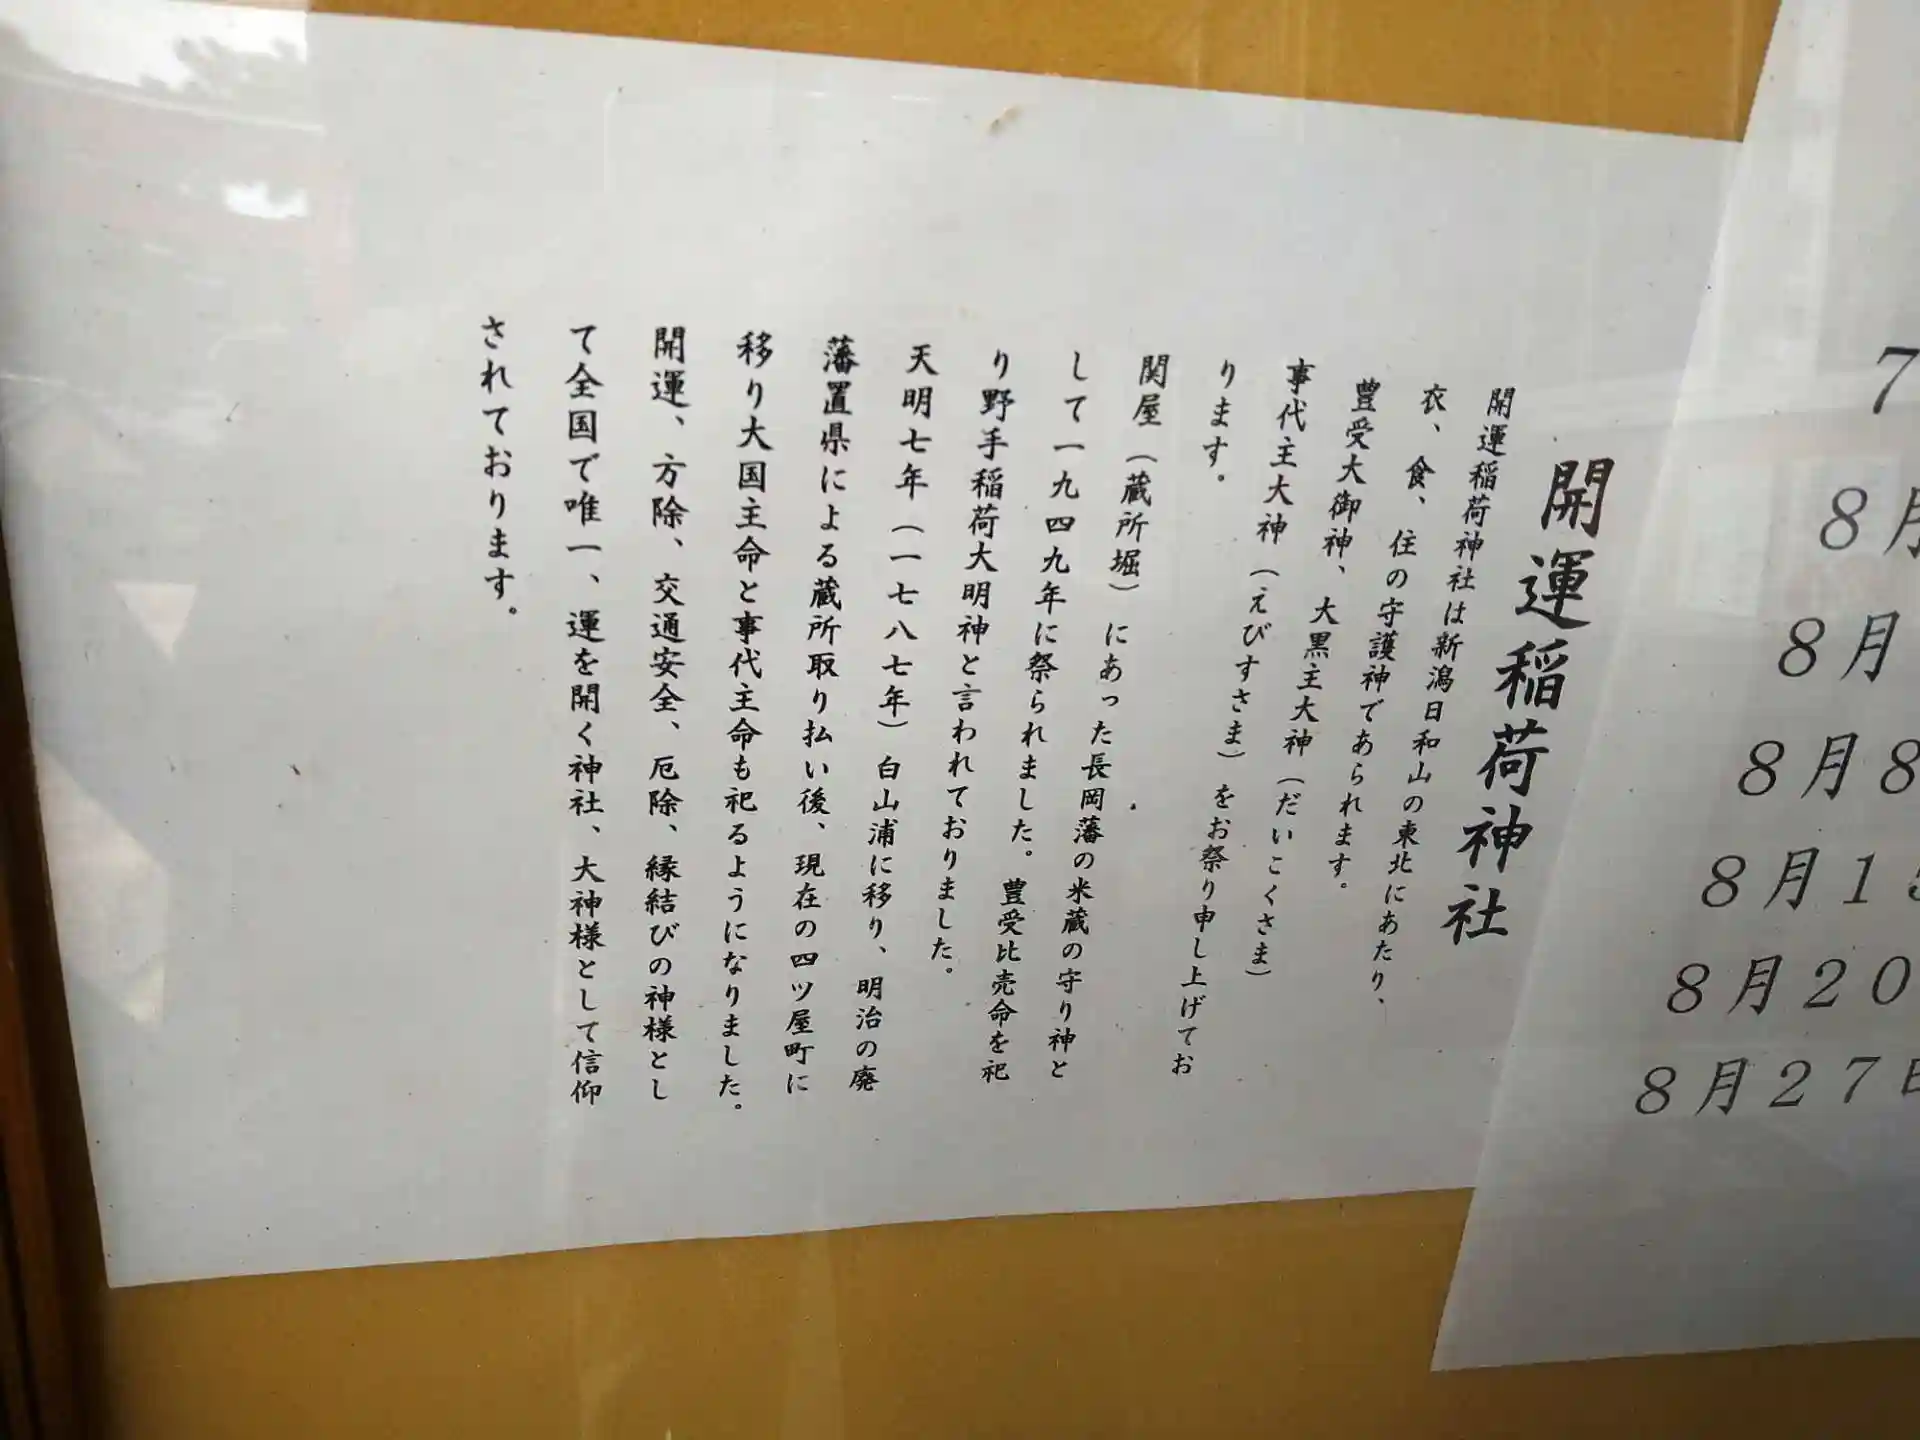 開運稲荷神社
開運稲荷神社は新潟日和山の東北にあたり、
衣、食、住の守護神であられます。
豊受大御神、大黒主大神（だいこくさま）
事代主大神（えびすさま）をお祭り申し上げてお
ります。
関屋（蔵所堀）にあった長岡藩の米蔵の守り神と
して一九四九年に祭られました。豊受比売命を祀
り野手稲荷大明神と言われておりました。
天明七年（一七八七年）白山浦に移り、明治の廃
藩置県による蔵所取り払い後、現在の四ツ屋町に
移り大国主命と事代主命も祀るようになりました。
開運、方除、交通安全、厄除、縁結びの神様とし
て全国で唯一、運を開く神社、大神様として信仰
されております。
7
8月
8月
8月8
8月15
8月20
8月27日